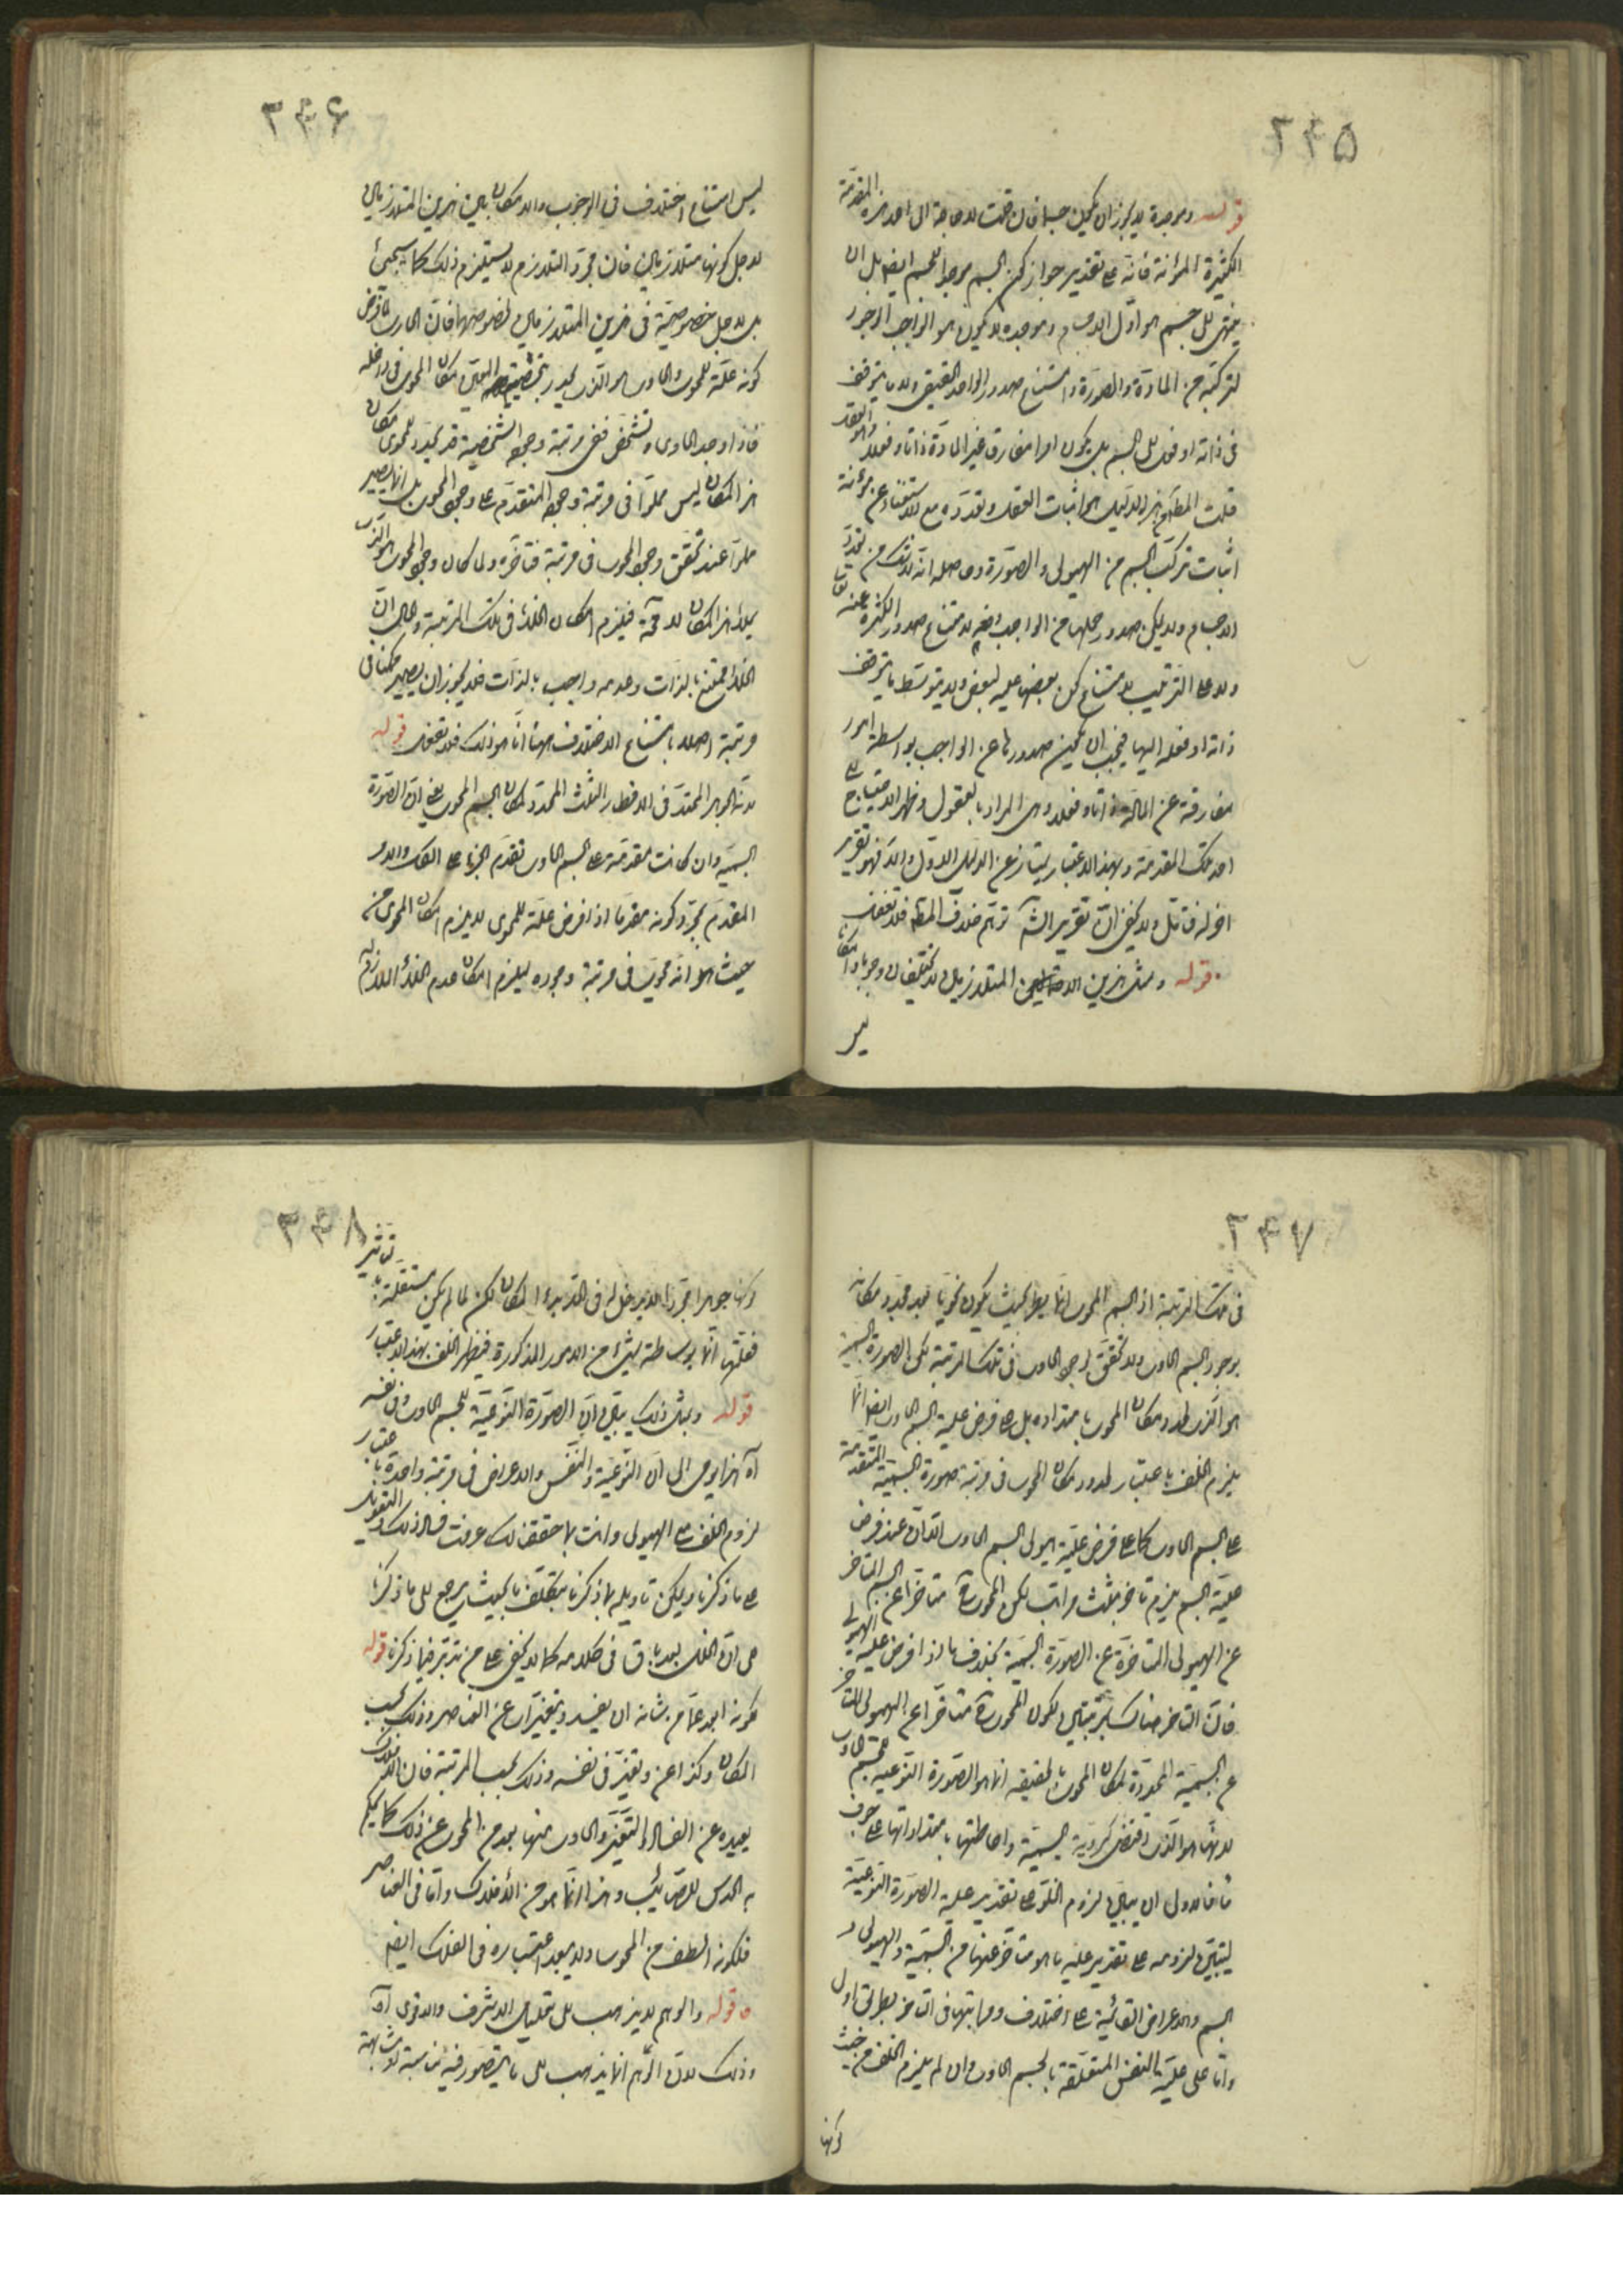 ۲۴۵
قوله وموجدة لا يجوز ان يكون جسما فان قلت لا حاجة الى اخذ هذه المقدمة
الكثيرة المؤنة فانه على تقدير جواز كون الجسم موجدا للجسم ايضا بل ان
ينتهى الى جسم هو اول الاجسام وموجده لا يكون هو الواجب الوجود
لتركبه من المادة والصورة وامتناع صدور الواحد الحقيقى ولا ما يتوقف
فى ذاته او فعله الى الجسم بل يكون امرا مفارق غير المادة ذاتا وفعلا وهو العقل
قلت المط من هذا الدليل هو اثبات العقل وتعدده مع الاستغناء عن مؤنة
اثبات تركب الجسم من الهيولى والصورة وحاصله انه لا شك من تعدد
الاجسام ولا يمكن صدور جملها من الواجب لامتناع صدور الكثرة عنه
ولا على الترتيب لامتناع كون بعضها علية لبعض ولا بتوسط ما يتوقف
ذاته او فعله اليها فيجب ان يكون صدورها عن الواجب بواسطة امور
مفارقة عن المادة ذاتا وفعلا وهى المراد بالعقول وظهر الاحتياج الى
اخذ تلك المقدمة وبهذا الاعتبار يمتاز عن الدليل الاول والا فهو تقرير
اخر له فتامل ولا يخفى ان تقرير الش توهم خلاف المط فلا تغفل
قوله ومثل هذين المتلازمين لا يختلفان وجوبا وامكانا
ليس
۲۴۶
ليس امتناع اختلاف فى الوجوب والامكان بين هذين المتلازمين
لاجل كونهما متلازمين فان مجرد التلازم لا يستلزم ذلك كما سيجئ
بل لاجل خصوصية فى هذين المتلازمين لخصوصهما فان الحاوى لما فرض
كونه علة للمحوى والحاوى هو الذى يحدد مكان المحوى فى داخله
فاذا وجد الحاوى وتشخص ففى مرتبة وجوده الشخصية قد يحدد للمحوى مكان
هذا المكان ليس مملوا فى مرتبة وجوده المتقدم على وجود المحوى بل انما يصير
مملوا عند تحقق وجود المحوى فى مرتبة متاخرة ولما كان وجود المحوى هو الذى
يملأ هذا المكان لا محة فيلزم امكان الخلأ فى تلك المرتبة والحال ان
الخلأ ممتنع بالذات وعدمه واجب بالذات فلا يجوز ان يصير ممكنا فى
مرتبة اصلا بامتناع الاختلاف هنا انما هو ذلك فلا تغفل قوله
لانه الجوهر الممتد فى الاقطار الثلث المحدد لمكان الجسم المحوى يعنى ان الصورة
الجسمية وان كانت مقدمة على الجسم الحاوى تقدم الجزء على الكل والامر
المقدم بمجرد كونه مقدما اذا فرض علة للمحوى لا يلزم امكان المحوى من
حيث هو انه محوى فى مرتبة وجوده ليلزم امكان عدم الخلأ اللازم له
۲۴۷
فى تلك المرتبة اذ الجسم المحوى انما هو بحيث يكون محويا بعد تحدد مكانه
بوجود الجسم الحاوى ولا تحقق لوجود الحاوى فى تلك المرتبة لكن الصورة الجسمية
هو الذى يحدد مكان المحوى بامتداده بل على فرض علية الجسم الحاوى ايضا انما
يلزم الخلف باعتبار تحدد مكان المحوى فى مرتبة صورة الجسمية المتقدمة
على الجسم الحاوى كما على فرض علية هيولى الجسم الحاوى الا ان عند فرض
علية الجسم يلزم تاخر بثلث مراتب لكون المحوى متاخرا عن الجسم المتاخر
عن الهيولى المتاخرة عن الصورة الجسمية بخلاف ما اذا فرض علية الهيولى
فان التاخر هناك بمرتبتين لكون المحوى متاخرا عن الهيولى المتاخرة
عن الجسمية المحددة لمكان المحوى بالحقيقة انما هو الصورة النوعية للجسم الحاوى
لانها هو الذى اقتضى كروية الجسمية واحاطتها بامتداداتها على جوف
ما فالاولى ان يبين لزوم الخلأ على تقدير علية الصورة النوعية
ليتبين لزومه على تقدير علية ما هو متاخر عنها من الجسمية والهيولى و
الجسم والاعراض القائمة على اختلاف مراتبها فى التاخر بطريق اولى
واما على علية النفس المتعلقة بالجسم الحاوى وان لم يلزم الخلف من حيث
كونها
۲۴۸
كونها جوهرا مجردا لا مدخل له فى التحديد المكان لكن لما لم تكن مستقلة بالتاثير
فعلتها انما بوساطة شئ من الامور المذكورة فيظهر الخلف بهذا الاعتبار
قوله وبمثل ذلك يتبين ان الصورة النوعية للجسم الحاوى ونفسه
آه هذا يومى الى ان النوعية والنفس والاعراض فى مرتبة واحدة باعتبار
لزوم الخلف على الهيولى وانت بما حققنا لك عرفت فساد ذلك والتعويل
على ما ذكرنا ويمكن تاويله بما ذكرنا بتكلف بحيث يرجع الى ما ذكرنا
على ان الخلل بعد باق فى كلامه كما لا يخفى على من تدبر فيما ذكرنا قوله
لكونه ابعد عما من شانه ان يفسد ويتغير اى عن العناصر وذلك بحسب
المكان وكذا عن وتغير فى نفسه وذلك بحسب المرتبة فان الافلاك
بعيدة عن الفساد والتغير والحاوى منها ابعد من المحوى عن ذلك كما يحكم
به الحدس الصائب وهذا انما هو من الافلاك واما فى العناصر
فلكونه الطف من المحوى ولا يبعد اعتباره فى الفلك ايضا
قوله والوهم لا يذهب الى تعليل الاشرف والاقوى آه
وذلك لان الوهم انما يذهب الى ما يتصور فيه مناسبة او مشابهة